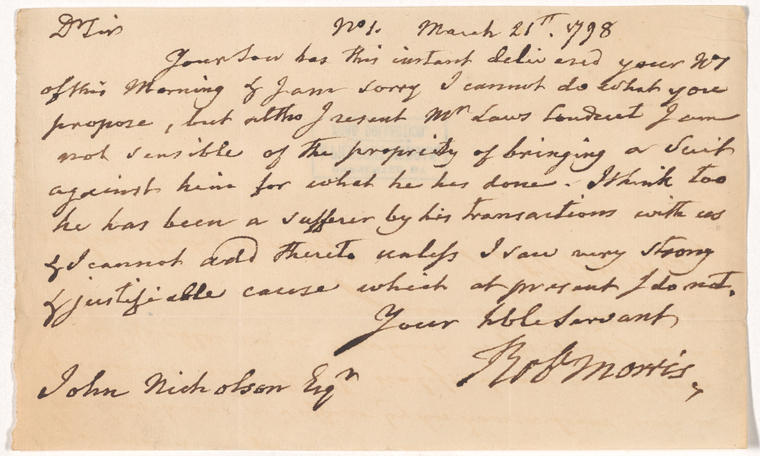 Dr Sir No 1. March 21st. 1798
Your Son has this instant delivered your No 7
of this Morning & I am sorry I cannot do what you
propose, but altho I resent Mr Laws Conduct I am
not sensible of the propriety of bringing a Suit
against him for what he has done. I think too
he has been a sufferer by his transactions with us
& I cannot add thereto unless I saw very strong
& justifiable cause which at present I do not.
Your hble Servant
Robt Morris
John Nicholson Esqr